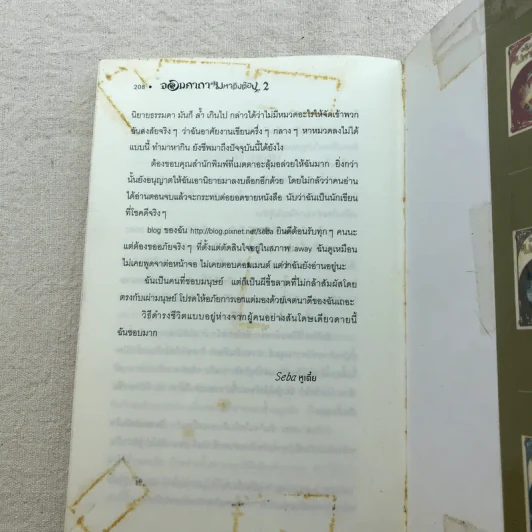 208 • จอมคาถามหาภูตอลป์ 2
นิยายธรรมดา มันก็ ล้ำ เกินไป กล่าวได้ว่าไม่มีหมวดอะไรให้จัดเข้าพวก
ฉันสงสัยจริงๆ ว่าฉันอาศัยงานเขียนครึ่งๆ กลางๆ หาหมวดลงไม่ได้
แบบนี้ ทำมาหากิน ยังชีพมาถึงปัจจุบันนี้ได้ยังไง
ต้องขอบคุณสำนักพิมพ์ที่เมตตาอะลุ้มอล่วยให้ฉันมาก ยิ่งกว่า
นั้นยังอนุญาตให้ฉันเอานิยายมาลงบล็อกอีกด้วย โดยไม่กลัวว่าคนอ่าน
ได้อ่านตอนจบแล้วจะกระทบต่อยอดขายหนังสือ นับว่าฉันเป็นนักเขียน
ที่โชคดีจริงๆ
blog ของฉัน http://blog.pixnet.net/seba ยินดีต้อนรับทุกๆ คนนะ
แต่ต้องขออภัยจริงๆ ที่ตั้งแต่ตัดสินใจอยู่ในสภาพ away ฉันดูเหมือน
ไม่เคยพูดจาต่อหน้าจอ ไม่เคยตอบคอมเมนต์ แต่ว่าฉันยังอ่านอยู่นะ
ฉันเป็นคนที่ชอบมนุษย์ แต่ก็เป็นผีขี้ขลาดที่ไม่กล้าสัมผัสโดย
ตรงกับเผ่ามนุษย์ โปรดให้อภัยการเอกแต่มองด้วยเจตนาดีของฉันเถอะ
วิธีดำรงชีวิตแบบอยู่ห่างจากผู้คนอย่างสันโดษเดียวดายนี้
ฉันชอบมาก
Seba หูเตี๋ย